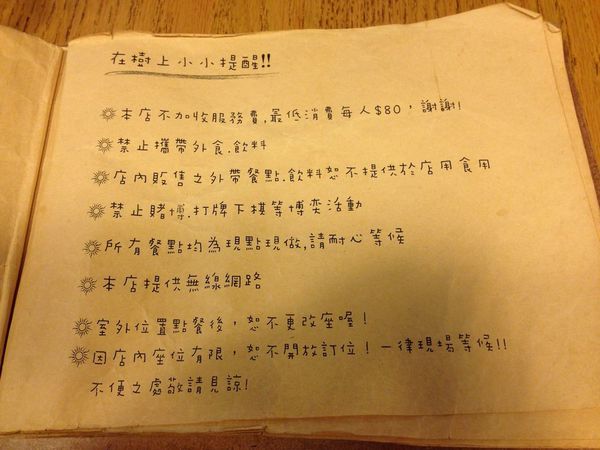 在樹上小小提醒!!
本店不加收服務費,最低消費每人$80，謝謝!
禁止攜帶外食.飲料
店內販售之外帶餐點.飲料恕不提供於店用食用
禁止賭博.打牌下棋等博奕活動
所有餐點均為現點現做,請耐心等候
本店提供無線網路
室外位置點餐後，恕不更改座喔!
因店內座位有限，恕不開放訂位!一律現場等候!!
不便之處敬請見諒!